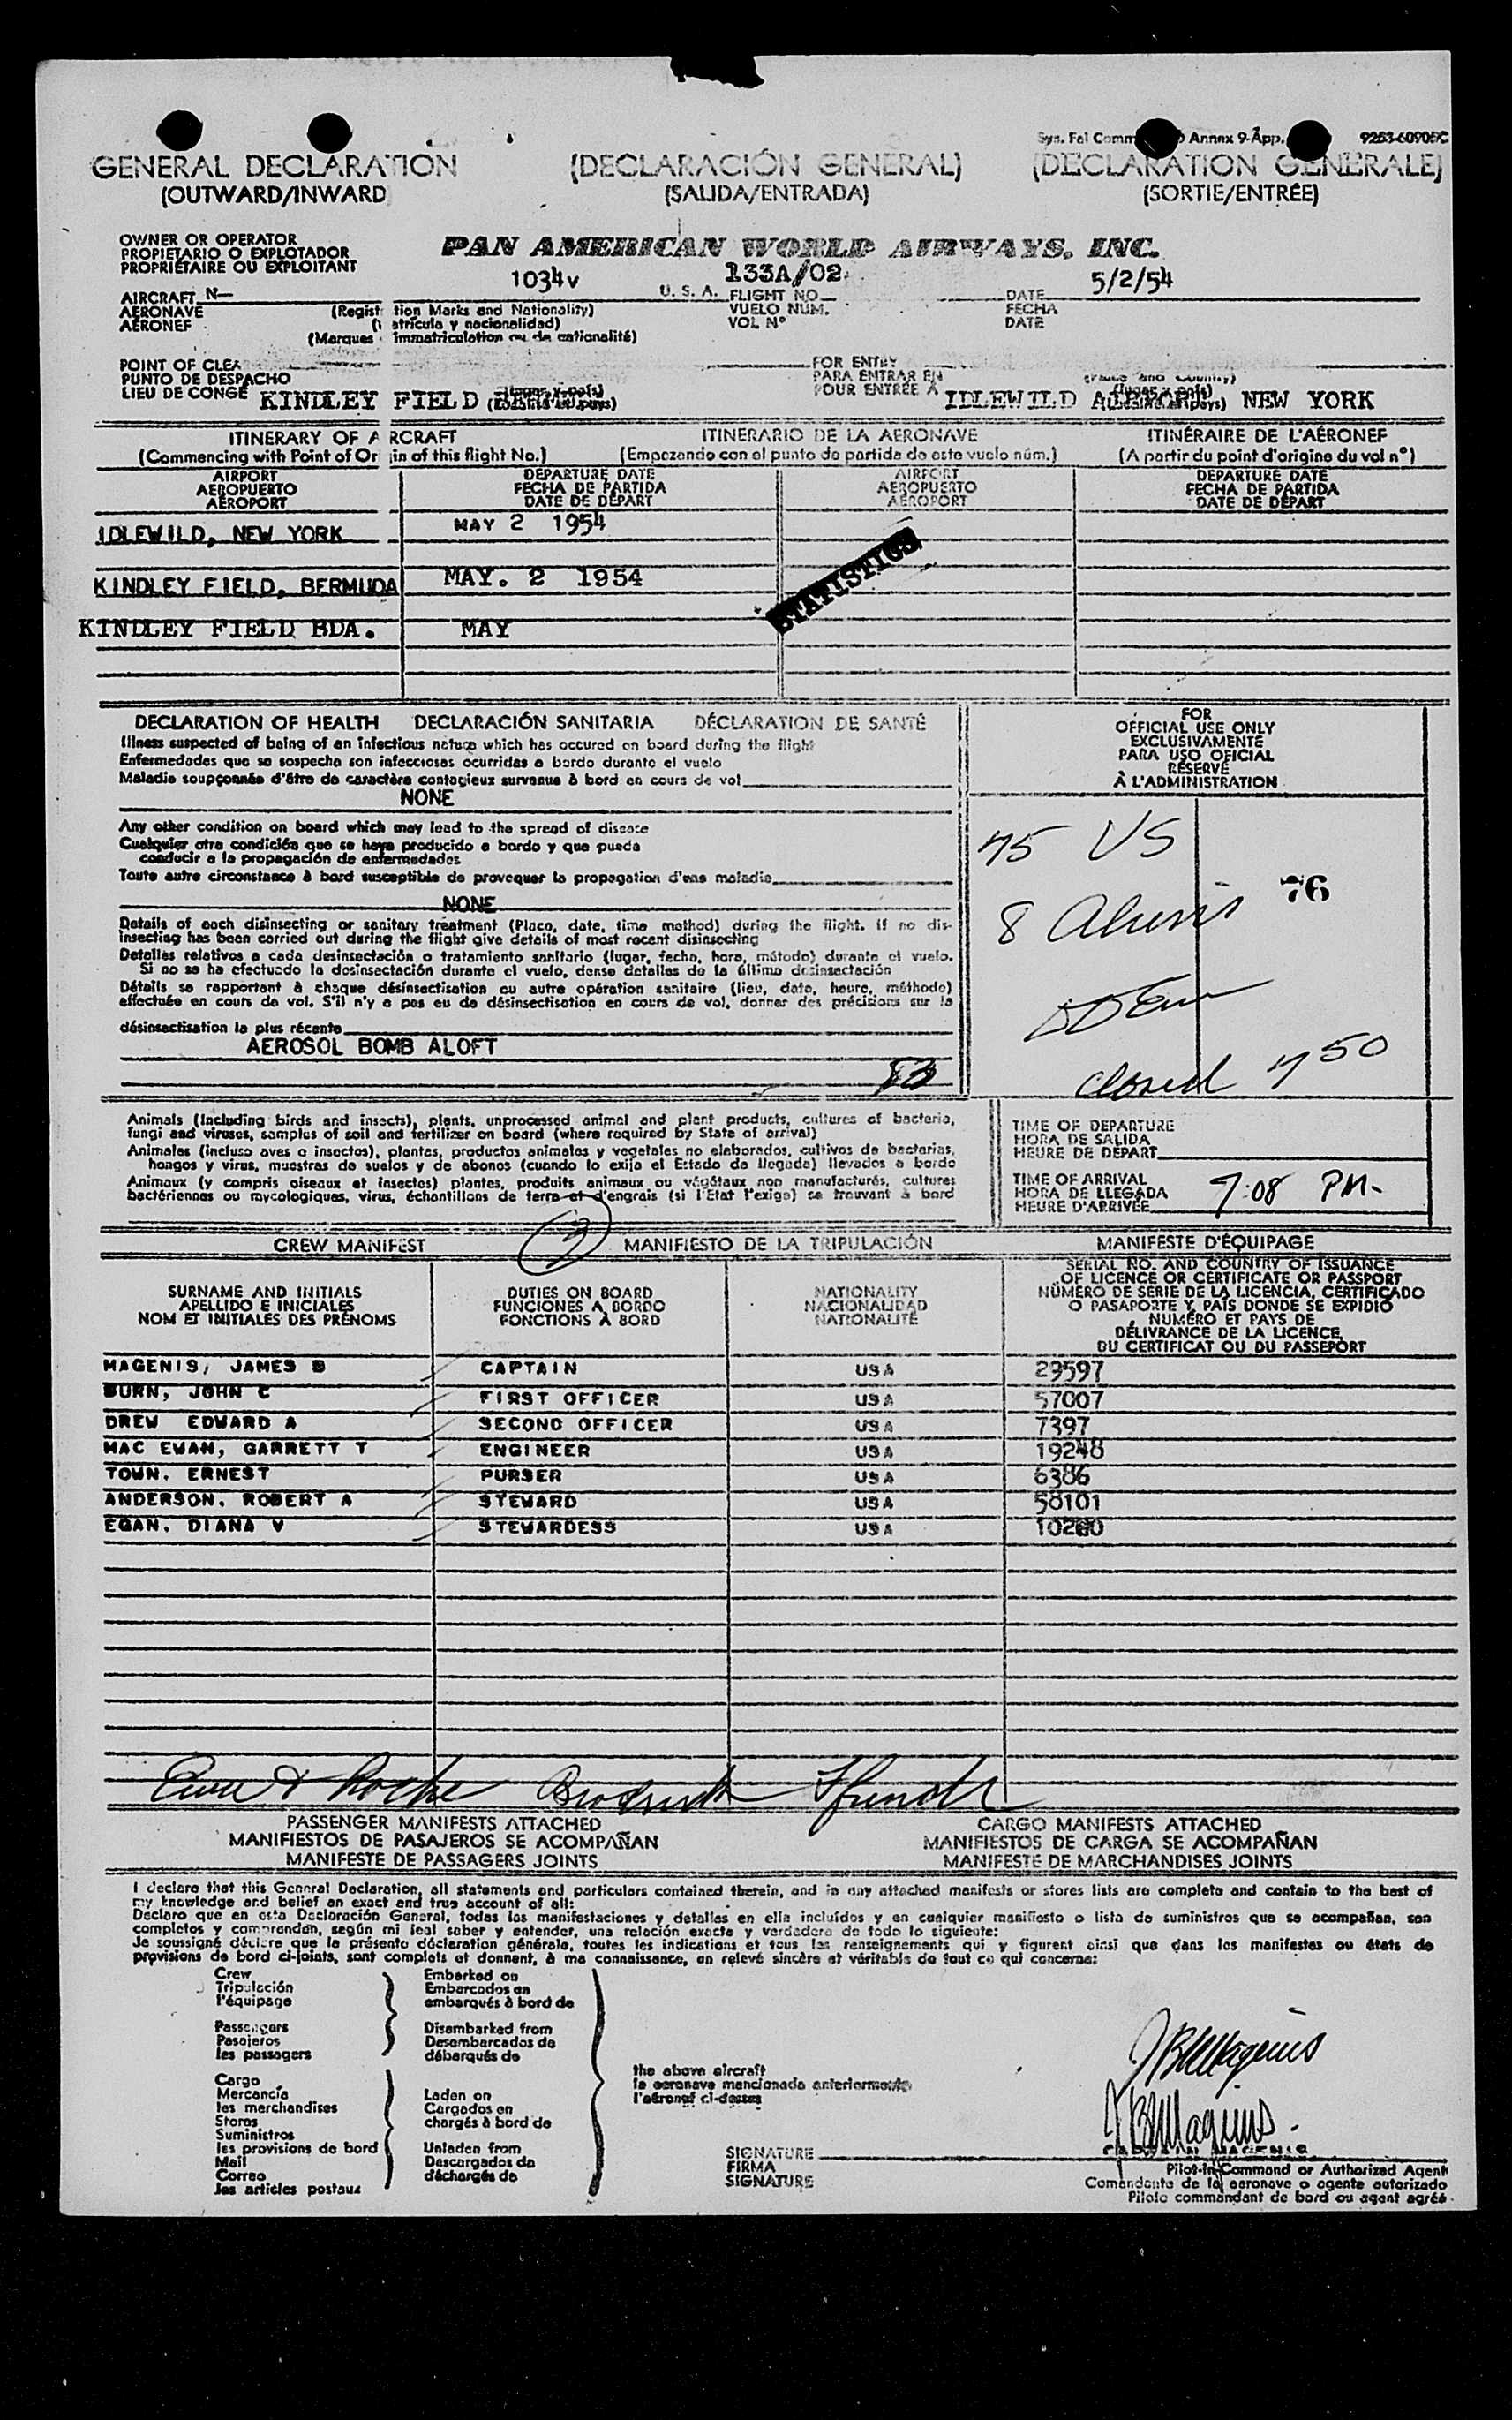 Annex 9-App. 9253-60905C
GENERAL DECLARATION (DECLARACIÓN GENERAL) (DECLARATION GENERALE)
(OUTWARD/INWARD (SALIDA/ENTRADA) (SORTIE/ENTRÉE)
OWNER OR OPERATOR
PROPIETARIO O EXPLOTADOR
PROPRIÉTAIRE OU EXPLOITANT
PAN AMERICAN WORLD AIRWAYS, INC.
1034v 133A/02 5/2/54
AIRCRAFT N— U. S. A. FLIGHT NO DATE
AERONAVE (Regist tion Marks and Nationality) VUELO NÚM. FECHA
AÉRONEF atrícula y nacionalidad) VOL Nº DATE
(Marques immatriculation ou de nationalité)
POINT OF CLEA FOR ENTRY
PUNTO DE DESPACHO PARA ENTRAR EN
LIEU DE CONGÉ KINDLEY FIELD POUR ENTRÉE A IDLEWILD AIRPORT NEW YORK
ITINERARY OF A RCRAFT ITINERARIO DE LA AERONAVE ITINÉRAIRE DE L'AÉRONEF
(Commencing with Point of Or in of this flight No.) (Empezando con el punto de partida de este vuelo núm.) (A partir du point d'origine du vol nº)
AIRPORT DEPARTURE DATE AIRPORT DEPARTURE DATE
AEROPUERTO FECHA DE PARTIDA AEROPUERTO FECHA DE PARTIDA
AÉROPORT DATE DE DÉPART AÉROPORT DATE DE DÉPART
IDLEWILD, NEW YORK MAY 2 1954
STATISTICS
KINDLEY FIELD, BERMUDA MAY. 2 1954
KINDLEY FIELD BDA. MAY
DECLARATION OF HEALTH DECLARACIÓN SANITARIA DÉCLARATION DE SANTÉ
Illness suspected of being of an infectious nature which has occured on board during the flight
Enfermedades que se sospecha son infecciosas ocurridas a bordo durante el vuelo
Maladie soupçonnée d'être de caractère contagieux survenue à bord en cours de vol
NONE
Any other condition on board which may lead to the spread of disease
Cualquier otra condición que se haya producido a bordo y que pueda
conducir a la propagación de enfermedades
Toute autre circonstance à bord susceptible de provoquer la propagation d'une maladie
NONE
Details of each disinsecting or sanitary treatment (Place, date, time method) during the flight. If no dis-
insecting has been carried out during the flight give details of most recent disinsecting
Detalles relativos a cada desinsectación o tratamiento sanitario (lugar, fecha, hora, método) durante el vuelo.
Si no se ha efectuado la desinsectación durante el vuelo, dense detalles de la última desinsectación
Détails se rapportant à chaque désinsectisation ou autre opération sanitaire (lieu, date, heure, méthode)
effectuée en cours de vol. S'il n'y a pas eu de désinsectisation en cours de vol, donner des précisions sur la
désinsectisation la plus récente
AEROSOL BOMB ALOFT
83
FOR
OFFICIAL USE ONLY
EXCLUSIVAMENTE
PARA USO OFICIAL
RÉSERVÉ
À L'ADMINISTRATION
75 US
76
8 Aliens
closed 7 50
Animals (including birds and insects), plants, unprocessed animal and plant products, cultures of bacteria,
fungi and viruses, samples of soil and fertilizer on board (where required by State of arrival)
Animales (incluso aves e insectos), plantas, productos animales y vegetales no elaborados, cultivos de bacterias,
hongos y virus, muestras de suelos y de abonos (cuando lo exija el Estado de llegada) llevados a bordo
Animaux (y compris oiseaux et insectes) plantes, produits animaux ou végétaux non manufacturés, cultures
bactériennes ou mycologiques, virus, échantillons de terre et d'engrais (si l'Etat l'exige) se trouvant à bord
TIME OF DEPARTURE
HORA DE SALIDA
HEURE DE DÉPART
TIME OF ARRIVAL
HORA DE LLEGADA
HEURE D'ARRIVÉE 7:08 PM-
CREW MANIFEST MANIFIESTO DE LA TRIPULACIÓN MANIFESTE D'ÉQUIPAGE
SURNAME AND INITIALS
APELLIDO E INICIALES
NOM ET INITIALES DES PRÉNOMS
DUTIES ON BOARD
FUNCIONES A BORDO
FONCTIONS À BORD
NATIONALITY
NACIONALIDAD
NATIONALITÉ
SERIAL NO. AND COUNTRY OF ISSUANCE
OF LICENCE OR CERTIFICATE OR PASSPORT
NÚMERO DE SERIE DE LA LICENCIA, CERTIFICADO
O PASAPORTE Y PAÍS DONDE SE EXPIDIÓ
NUMÉRO ET PAYS DE
DÉLIVRANCE DE LA LICENCE,
DU CERTIFICAT OU DU PASSEPORT
MAGENIS, JAMES B CAPTAIN USA 29597
BURN, JOHN C FIRST OFFICER USA 57007
DREW EDWARD A SECOND OFFICER USA 7397
MAC EWAN, GARRETT T ENGINEER USA 19248
TOWN, ERNEST PURSER USA 6386
ANDERSON, ROBERT A STEWARD USA 58101
EGAN, DIANA V STEWARDESS USA
PASSENGER MANIFESTS ATTACHED CARGO MANIFESTS ATTACHED
MANIFIESTOS DE PASAJEROS SE ACOMPAÑAN MANIFIESTOS DE CARGA SE ACOMPAÑAN
MANIFESTE DE PASSAGERS JOINTS MANIFESTE DE MARCHANDISES JOINTS
I declare that this General Declaration, all statements and particulars contained therein, and in any attached manifests or stores lists are complete and contain to the best of
my knowledge and belief an exact and true account of all:
Declaro que en esta Declaración General, todas las manifestaciones y detalles en ella incluídos y en cualquier manifiesto o lista de suministros que se acompañan, son
completos y comprenden, según mi leal saber y entender, una relación exacta y verdadera de todo lo siguiente:
Je soussigné déclare que la présente déclaration générale, toutes les indications et tous les renseignements qui y figurent ainsi que dans les manifestes ou états de
provisions de bord ci-joints, sont complets et donnent, à ma connaissance, un relevé sincère et véritable de tout ce qui concerne:
Crew Embarked on
Tripulación Embarcados en
l'équipage embarqués à bord de
Passengers Disembarked from
Pasajeros Desembarcados de
les passagers débarqués de
the above aircraft
la aeronave mencionada anteriormente
l'aéronef ci-dessus
Cargo
Mercancía Laden on
les merchandises Cargados en
Stores chargés à bord de
Suministros
les provisions de bord Unladen from
Mail Descargados de
Correo déchargés de
les articles postaux
J B Magenis
J B Magenis
SIGNATURE CAPTAIN MAGENIS
FIRMA Pilot-in-Command or Authorized Agent
SIGNATURE Comandante de la aeronave o agente autorizado
Pilote commandant de bord ou agent agréé